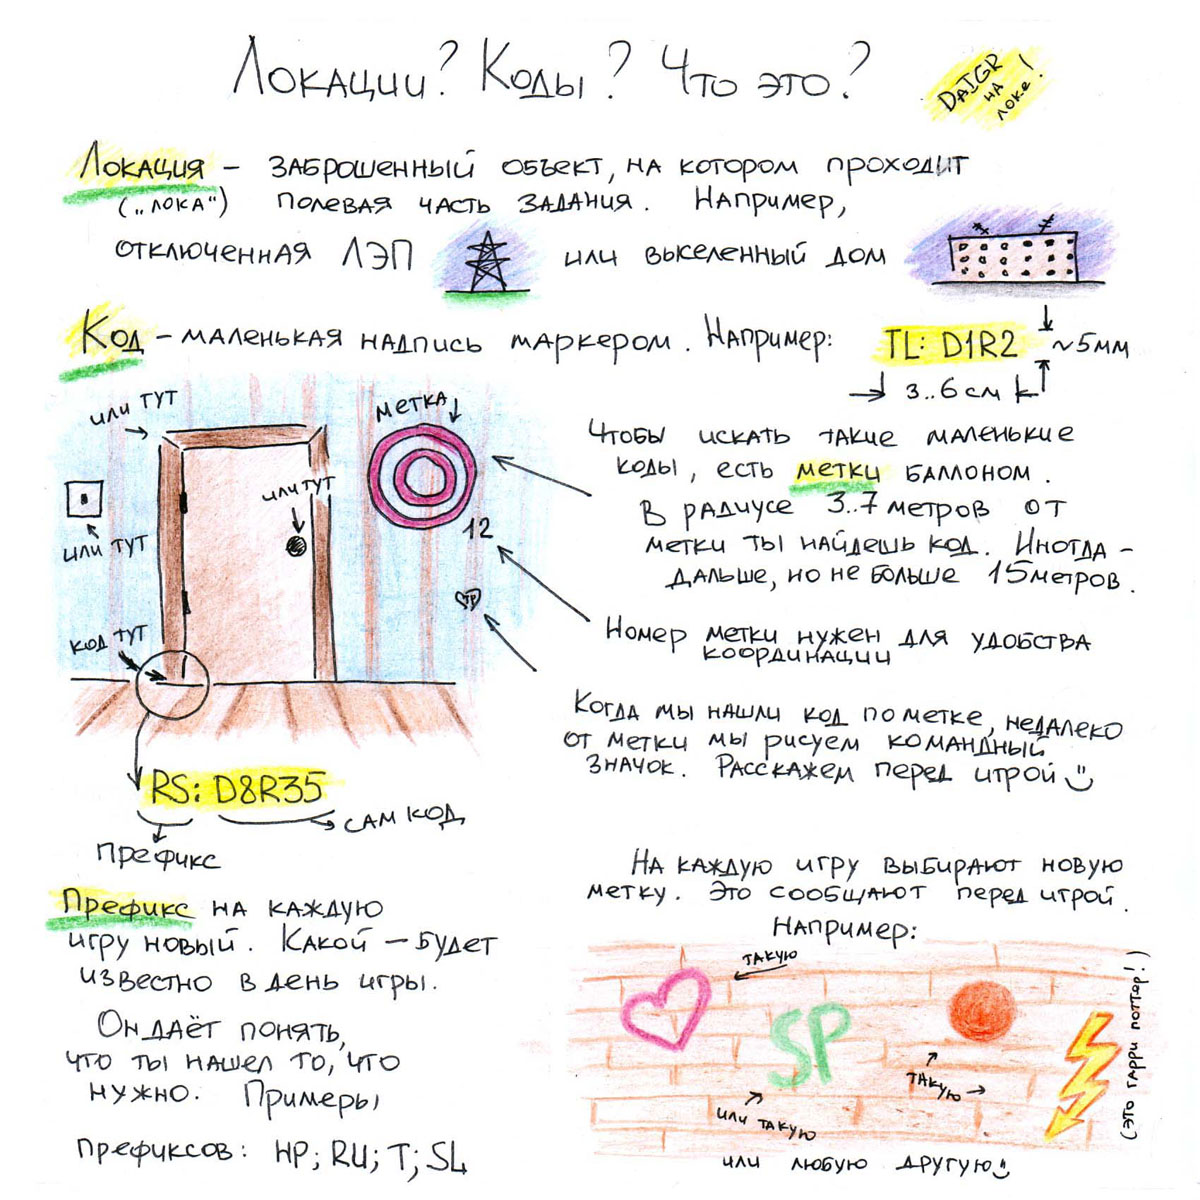 Локации? Коды? Что это?
DAIGR
на
локе!
Локация – заброшенный объект, на котором проходит
(„лока“) полевая часть задания. Например,
отключенная ЛЭП или выселенный дом
Код – маленькая надпись маркером. Например: TL: D1R2 ~5мм
3..6 см
или тут
метка
или тут
или тут
12
код тут
TP
Чтобы искать такие маленькие
коды, есть метки баллоном.
В радиусе 3..7 метров от
метки ты найдешь код. Иногда –
дальше, но не больше 15 метров.
Номер метки нужен для удобства
координации
Когда мы нашли код по метке, недалеко
от метки мы рисуем командный
значок. Расскажем перед игрой
RS: D8R35
сам код
префикс
Префикс на каждую
игру новый. Какой – будет
известно в день игры.
Он даёт понять,
что ты нашел то, что
нужно. Примеры
префиксов: HP; RU; T; SL
На каждую игру выбирают новую
метку. Это сообщают перед игрой.
Например:
такую
SP
такую
или такую
(это Гарри Поттер!)
или любую другую